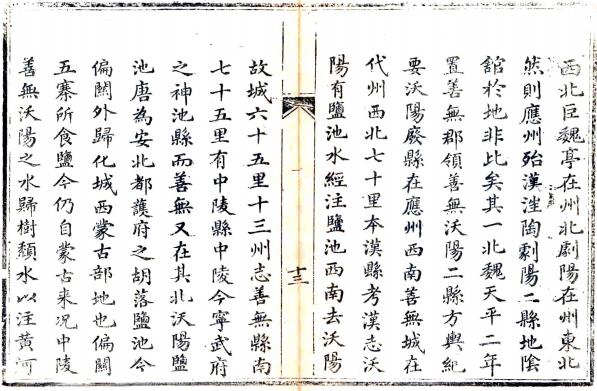 西北巨魏亭在州北劇陽在州東北
然則應州殆漢𣻐陶劇陽二縣地陰
舘於地非比矣其一北魏天平二年
置善無郡領善無沃陽二縣方輿紀
要沃陽廢縣在應州西南善無城在
代州西北七十里本漢縣考漢志沃
陽有鹽池水經注鹽池西南去沃陽
十三
故城六十五里十三州志善無縣南
七十五里有中陵縣中陵今寧武府
之神池縣而善無又在其北沃陽鹽
池唐為安北都護府之胡落鹽池今
偏關外歸化城西蒙古部地也偏關
五寨所食鹽今仍自蒙古来况中陵
善無沃陽之水歸樹頽水以注黄河